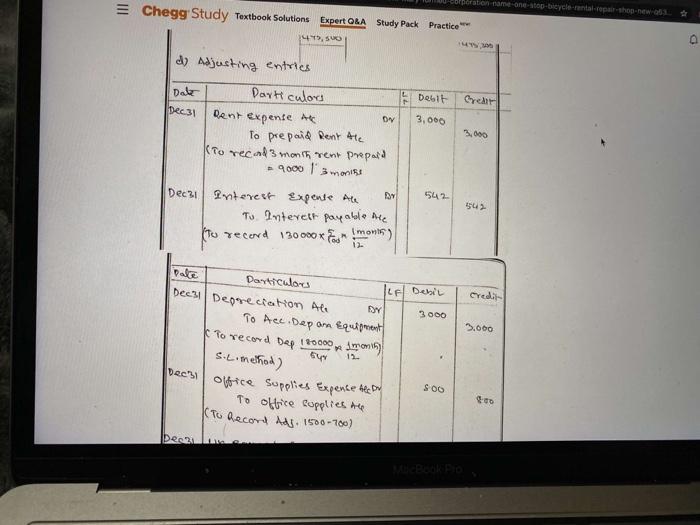 ☰ Chegg Study Textbook Solutions Expert Q&A Study Pack Practice NEW
corporation-name-one-stop-bicycle-rental-repair-shop-new-q53...
d) Adjusting entries
Date Particulars LF Debit Credit
Dec31 Rent Expense A/c Dr 3,000
To prepaid Rent A/c 3,000
(To record 3 month rent prepaid
= 9000 / 3 months
Dec31 Interest Expense A/c Dr 542
To Interest payable A/c 542
(To record 130000 x 5/100 x 1 month/12)
Date Particulars LF Debit Credit
Dec31 Depreciation A/c Dr 3000
To Acc. Dep on Equipment 3,000
(To record Dep 180000/5yr x 1 month/12)
S.L. method)
Dec31 Office Supplies Expense A/c Dr 800
To office supplies A/c 800
(To Record Adj. 1500-700)
Dec31
MacBook Pro